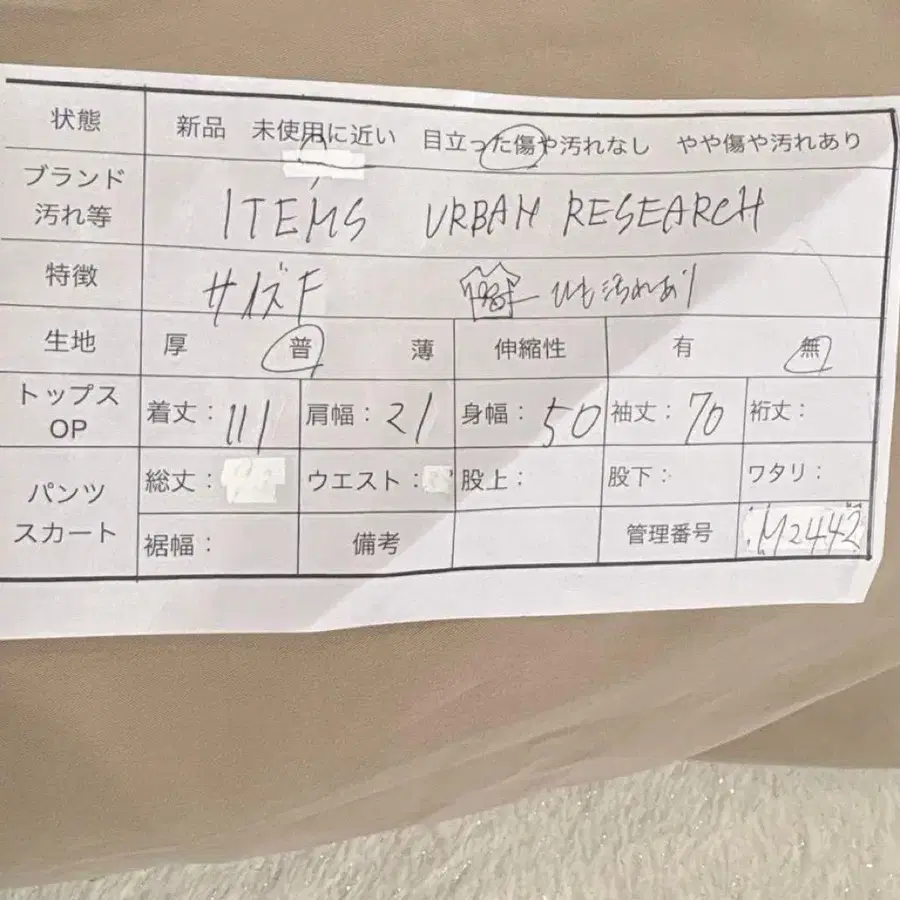 状態 新品 未使用に近い 目立った傷や汚れなし やや傷や汚れあり
ブランド
汚れ等 ITEMS URBAN RESEARCH
特徴 サイズF ひも汚れあり
生地 厚 普 薄 伸縮性 有 無
トップス
OP 着丈: 111 肩幅: 21 身幅: 50 袖丈: 70 裄丈:
パンツ
スカート 総丈: ウエスト: 股上: 股下: ワタリ:
裾幅: 備考 管理番号 M2442